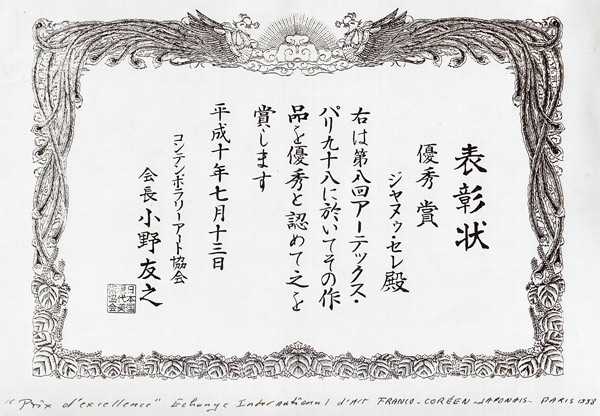 表彰状
優秀賞
ジャメゥ・セレ殿
右は第八回アーテックス・
パリ九十八に於いてその作
品を優秀と認めて之を
賞します
平成十年七月十三日
コンテンポラリーアート協会
会長 小野友之
"Prix d'excellence" Echange International d'Art FRANCO-CORÉEN-JAPONAIS- PARIS 1998